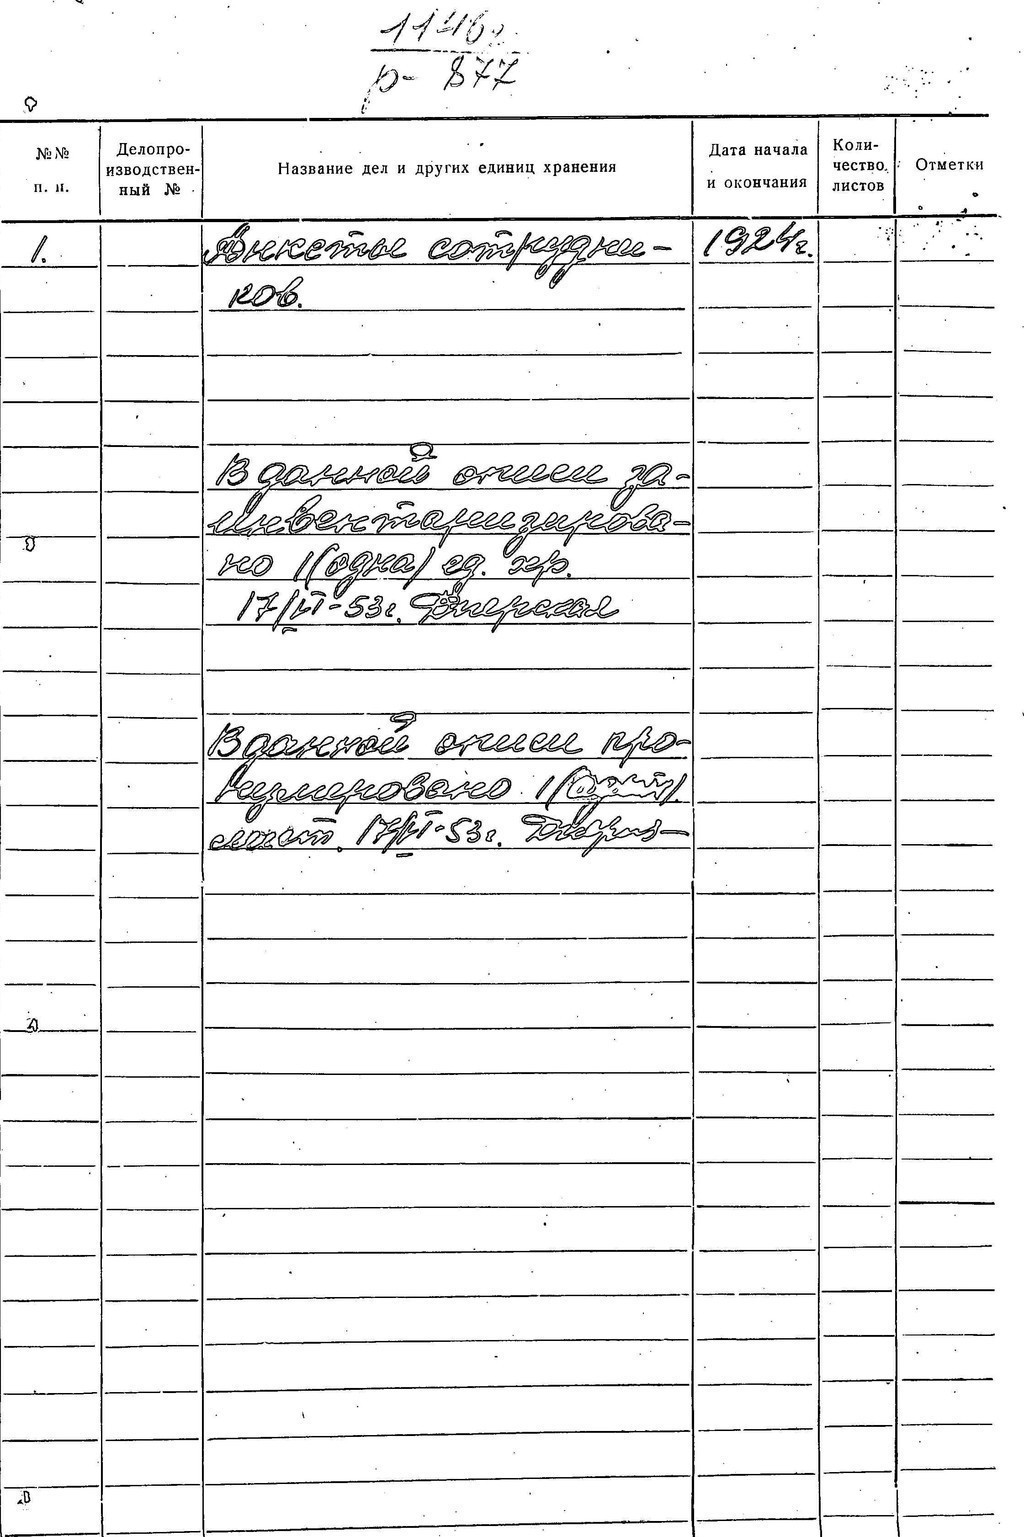 р- 877
№№ п. п.
Делопро-
изводствен-
ный №
Название дел и других единиц хранения
Дата начала
и окончания
Коли-
чество
листов
Отметки
1. Анкеты сотрудни- 1924г.
ков.
В данной описи за-
инвентаризирова-
но 1 (одна) ед. хр.
17/VI-53г.
В данной описи про-
нумеровано 1
лист. 17/VI-53г.